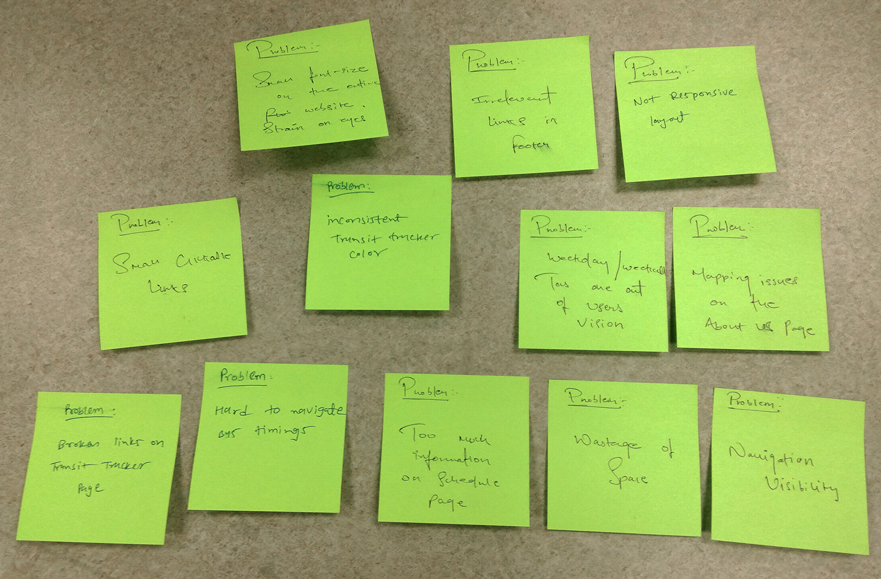 Problem:-
Small font-size
on the entire
website.
Strain on eyes
Problem:-
Irrelevent
links in
footer
Problem:-
Not Responsive
layout
Problem:-
Small Clickable
links
Problem:-
inconsistent
Transit tracker
color
Problem:-
Weekday/weekend
Tabs are out
of users
Vision
Problem:-
Mapping issues
on the
About us Page
Problem:
Broken links on
Transit Tracker
Page
Problem:
Hard to navigate
timings
Problem:-
Too much
information
on schedule
page
Problem:-
Wastage of
Space
Problem:-
Navigation
Visibility